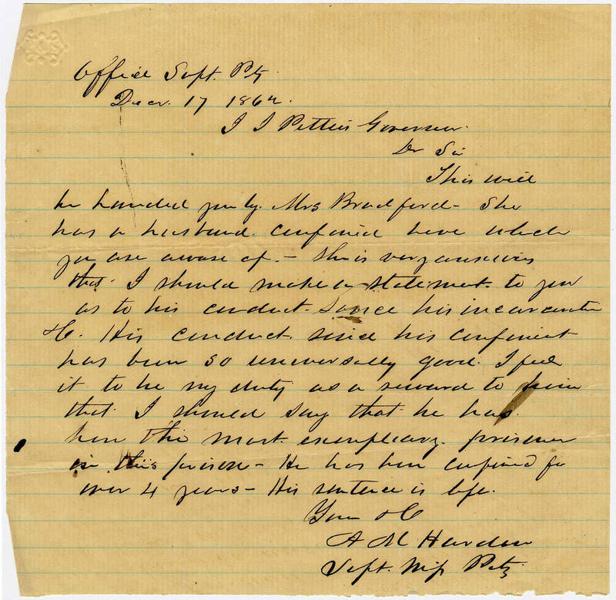 Office Supt. Pty.
Decr. 17 1862.
J J Pettus Governor.
Dr Sir
This will
be handed you by. Mrs Bradford - She
has a husband. confined here which
you are aware of. - She is very anxious
that. I should make a statement. to you
as to his conduct. since his incarceration
&C. His conduct since his confinment
has been so universally good. I feel
it to be my duty as a reward to him
that. I should say that he has.
been the most exemplary. prisoner
in this prison - He has been confined for
over 4 years - His sentence is life.
Your &C
A M Hardin
Supt. Miss Pty.